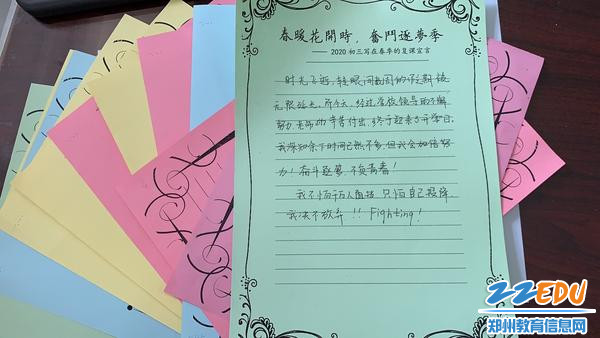 春暖花開時，奮鬥逐夢季
—— 2020 初三写在春季的复课宣言
时光飞逝，转眼间我们的假期被
无限延长，而今天，经过学校领导的不懈
努力，老师的辛苦付出，终于迎来了开学日。
我深知余下时间已然不多，但我会加倍努
力！奋斗逐梦，不负青春！
我不怕千万人阻挡，只怕自己投降
我决不放弃！！Fighting！
ZZEDU
郑州教育信息网